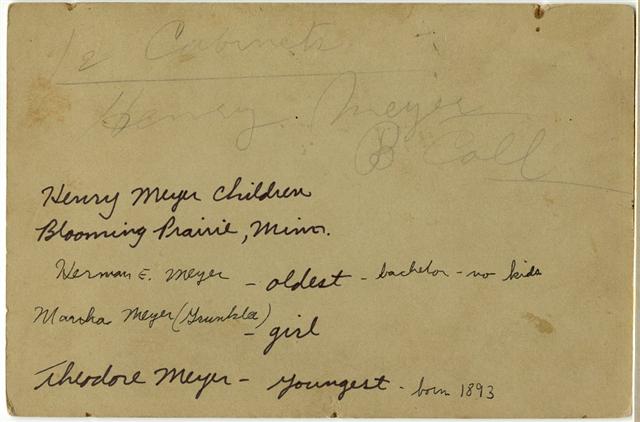 12 Cabinets
Henry Meyer
B Call
Henry Meyer Children
Blooming Prairie, Minn.
Herman E. Meyer - oldest - bachelor - no kids
Martha Meyer (Trunkle) - girl
Theodore Meyer - youngest - born 1893